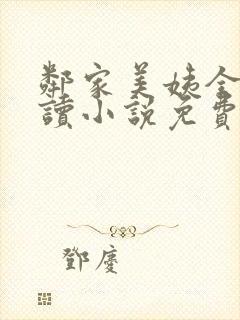 鄰家美姨全
讀小說免費
鄧慶